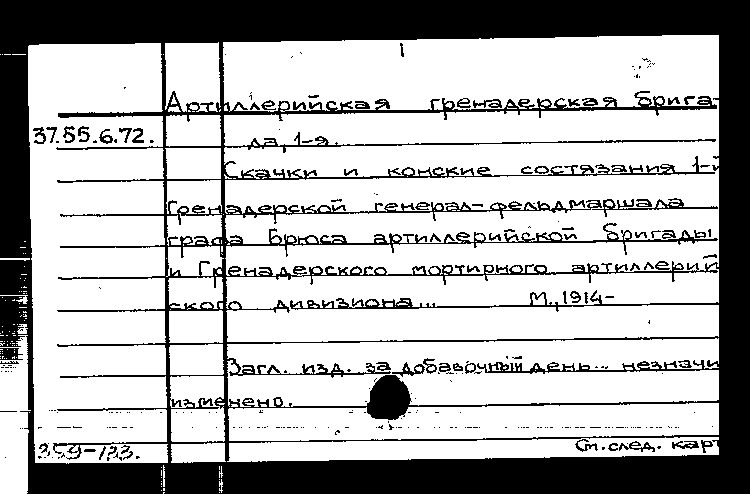 Артиллерийская гренадерская брига-
37.55.6.72. да, 1-я.
Скачки и конские состязания 1-й
Гренадерской генерал-фельдмаршала
графа Брюса артиллерийской бригады
и Гренадерского мортирного артиллерий
ского дивизиона... М., 1914-
Загл. изд. за добавочный день... незначи
изменено.
359-133.
См. след. карт